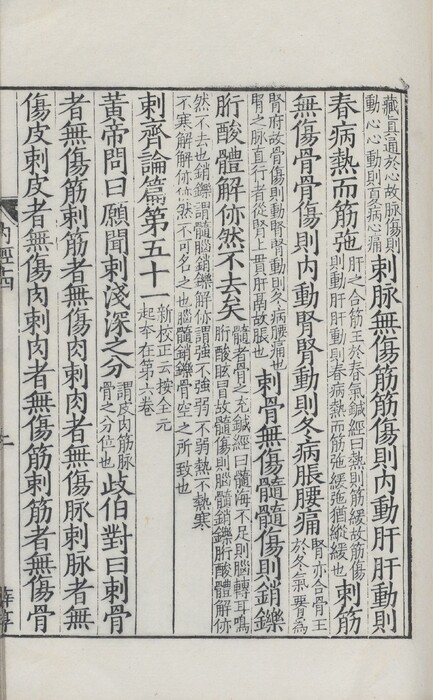 藏真通於心故脉傷則
動心心動則夏病心痛
刺脉無傷筋筋傷則内動肝肝動則
春病熱而筋㢮
肝之合筋王於春氣鍼經曰熱則筋緩故筋傷
則動肝肝動則春病熱而筋㢮緩㢮猶縱緩也
刺筋
無傷骨骨傷則内動腎腎動則冬病脹腰痛
腎亦合骨王
於冬氣腎爲
腎府故骨傷則動腎腎動則冬病腰痛也
腎之脉直行者從腎上貫肝鬲故脹也
刺骨無傷髓髓傷則銷鑠
䯒酸體解㑊然不去矣
髓者骨之充鍼經曰髓海不足則腦轉耳鳴
䯒酸眩冒故髓傷則腦髓銷鑠䯒酸體解㑊
然不去也銷鑠謂髓腦銷鑠解㑊謂強不強弱不弱熱不熱寒
不寒解解㑊㑊然不可名之也腦髓銷鑠骨空之所致也
刺齊論篇第五十一
新校正云按全元
起本在第六卷
黄帝問曰願聞刺淺深之分
謂皮肉筋脉
骨之分位也
岐伯對曰刺骨
者無傷筋刺筋者無傷肉刺肉者無傷脉刺脉者無
傷皮刺皮者無傷肉刺肉者無傷筋刺筋者無傷骨
内經十四